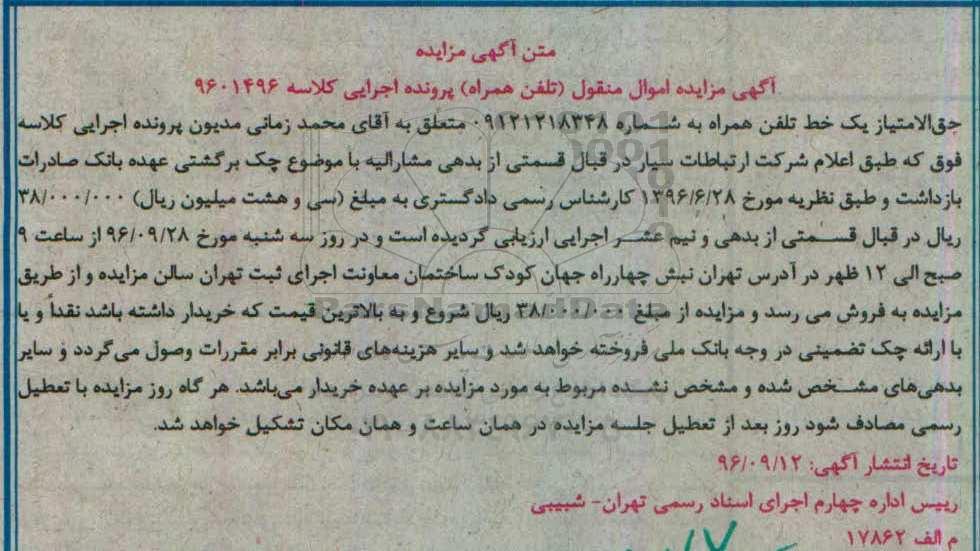 متن آگهی مزایده
آگهی مزایده اموال منقول (تلفن همراه) پرونده اجرایی کلاسه ۹۶۰۱۴۹۶
حق‌الامتیاز یک خط تلفن همراه به شماره ۰۹۱۲۱۲۱۸۳۴۸ متعلق به آقای محمد زمانی مدیون پرونده اجرایی کلاسه
فوق که طبق اعلام شرکت ارتباطات سیار در قبال قسمتی از بدهی مشارالیه با موضوع چک برگشتی عهده بانک صادرات
بازداشت و طبق نظریه مورخ ۱۳۹۶/۶/۲۸ کارشناس رسمی دادگستری به مبلغ (سی و هشت میلیون ریال) ۳۸/۰۰۰/۰۰۰
ریال در قبال قسمتی از بدهی و نیم عشر اجرایی ارزیابی گردیده است و در روز سه شنبه مورخ ۹۶/۰۹/۲۸ از ساعت ۹
صبح الی ۱۲ ظهر در آدرس تهران نبش چهارراه جهان کودک ساختمان معاونت اجرای ثبت تهران سالن مزایده و از طریق
مزایده به فروش می رسد و مزایده از مبلغ ۳۸/۰۰۰/۰۰۰ ریال شروع و به بالاترین قیمت که خریدار داشته باشد نقداً و یا
با ارائه چک تضمینی در وجه بانک ملی فروخته خواهد شد و سایر هزینه‌های قانونی برابر مقررات وصول می‌گردد و سایر
بدهی‌های مشخص شده و مشخص نشده مربوط به مورد مزایده بر عهده خریدار می‌باشد. هر گاه روز مزایده با تعطیل
رسمی مصادف شود روز بعد از تعطیل جلسه مزایده در همان ساعت و همان مکان تشکیل خواهد شد.
تاریخ انتشار آگهی: ۹۶/۰۹/۱۲
رییس اداره چهارم اجرای اسناد رسمی تهران- شبیبی
م الف ۱۷۸۶۲
ParsNamadData